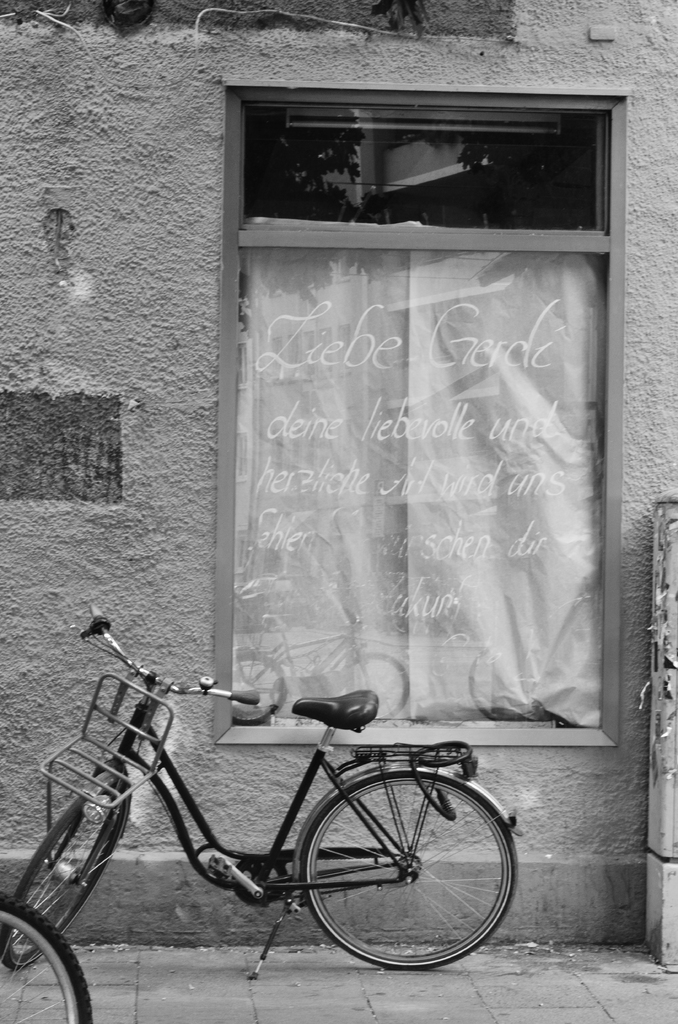 Liebe Gerdi
deine liebevolle und
herzliche Art wird uns
fehlen wünschen dir
Zukunft